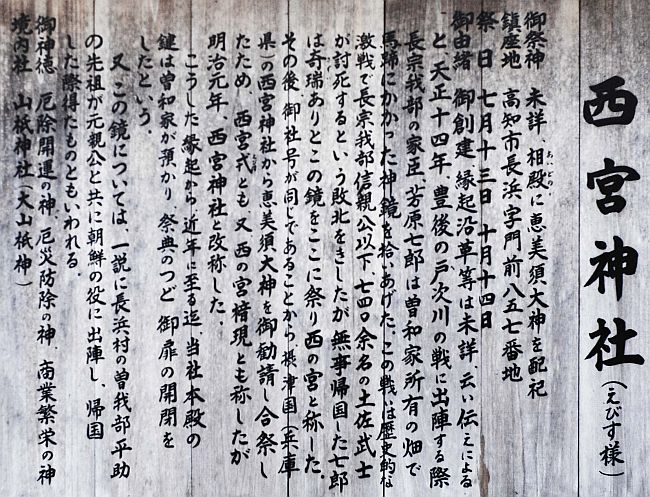 西宮神社(えびす様)
御祭神 未詳 相殿に恵美須大神を配祀
あいどの
鎮座地 高知市長浜字門前八五七番地
祭日 七月十三日 十月十四日
御由緒 御創建、縁起沿革等は未詳、云い伝えによる
と、天正十四年、豊後の戸次川の戦に出陣する際
長宗我部の家臣、芳原七郎は曽和家所有の畑で
馬蹄にかかった神鏡を拾いあげた。この戦いは歴史的な
激戦で長宗我部信親公以下、七四〇余名の土佐武士
が討死するという敗北をきしたが無事帰国した七郎
は奇瑞ありとこの鏡をここに祭り西の宮と称した。
その後、御社号が同じであることから、摂津国(兵庫
県)の西宮神社から恵美須大神を御勧請し合祭し
たため、西宮弐とも、又、西の宮権現とも称したが
明治元年、西宮神社と改称した。
こうした縁起から、近年に至る迄、当社本殿の
鍵は曽和家が預かり、祭典のつど御扉の開閉を
したという。
又、この鏡については、一説に長浜村の曽我部平助
の先祖が元親公と共に朝鮮の役に出陣し、帰国
した際得たものともいわれる。
御神徳 厄除開運の神、厄災防除の神、商業繁栄の神
境内社 山祇神社(大山祇神)